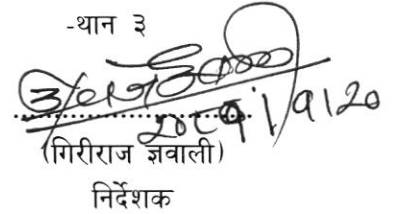 -थान ३
२०८१।९।२०
(गिरीराज ज्ञवाली)
निर्देशक